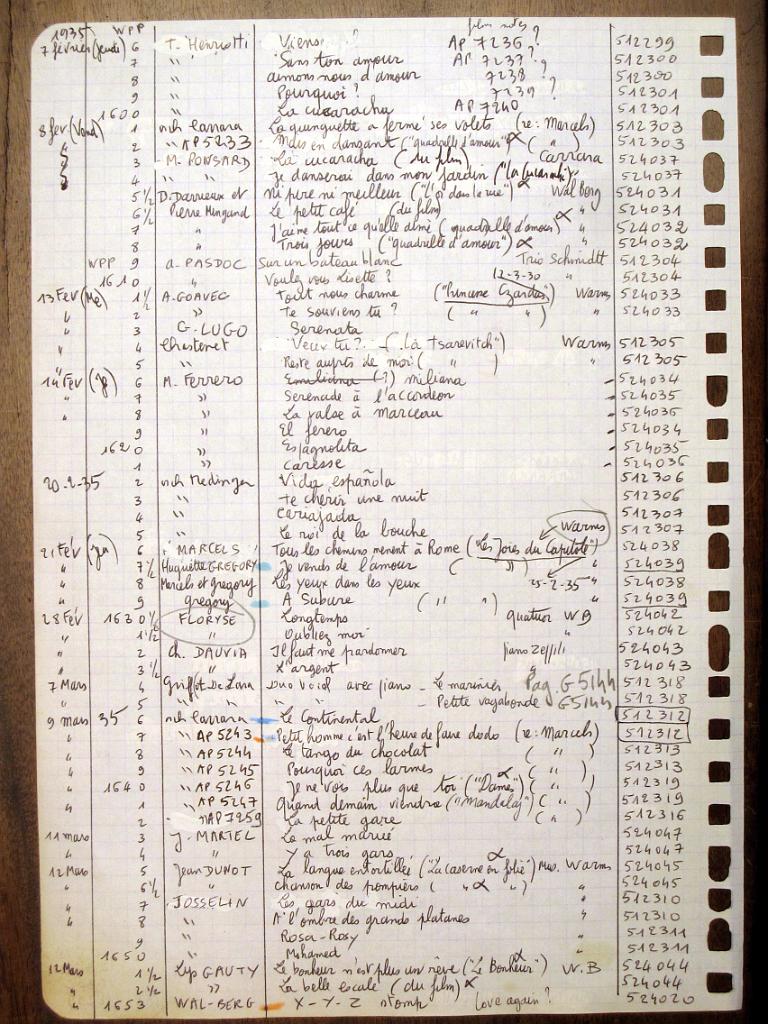 1935 WPP plus notes
7 février (jeudi) 6 T. Henriotti Viens ? AP 7236 ? 512299
7 " Sans ton amour AP 7237 ? 512300
8 " aimons nous d'amour 7238 ? 512300
9 " Pourquoi ? 7239 ? 512301
1600 " La cucaracha AP 7240 512301
8 fev (Vend) 1 nck Carrara La guinguette a fermé ses volets (re: Marcels) 512303
2 " AP 5233 Mais en dansant ("quadrille d'amour") ∝ ( " 512303
3 M. PONSARD La cucaracha (du film) Carrara 524037
4 " " Je danserai dans mon jardin ("la Cucaracha") 524037
5 1/2 D. Darrieux et ni pire ni meilleur ("L'or dans la rue") ∝ Wal Berg 524031
6 1/2 Pierre Mingand Le petit café (du film) " 524031
7 " J'aime tout ce qu'elle aime (quadrille d'amour) ∝ " 524032
8 " Trois jours ("quadrille d'amour") ∝ " 524032
WPP 9 a. PASDOC Sur un bateau blanc Trio Schmidtt 512304
1610 " Voulez vous Lisette ? 12-3-30 " 512304
13 Fev (Me) 1 1/2 A. GOAVEC Tout nous charme ("Princesse Czardas") Warms 524033
" 2 " Te souviens tu ? ( " " ) " 524033
" 3 G. LUGO Serenata
" 4 Chastenet Veux tu ? - (.La tsarevitch") Warms 512305
5 " Reste auprès de moi ( " ) " 512305
14 Fev (je) 6 M. Ferrero Emiliana (?) miliana - 524034
" 7 " Serenade à l'accordéon 524035
" 8 " La valse à Marceau 524036
9 " El ferero 524034
1620 " Espagnolita - 524035
1 " Caresse - 524036
20-2-35 2 nck Medinger Vida española 512306
3 " te chérir une nuit 512306
4 " Cariajada 512307
5 " Le roi de la bouche Warms 512307
21 Fév (Jeu) 6 ' MARCELS ' Tous les chemins menent à Rome ("Les Joies du Capitole") 524038
" 7 1/2 Huguette GREGORY Je vends de l'amour ( " ) " 524039
" 8 Marcels et gregory Les yeux dans les yeux 25-2-35 " 524038
" 9 gregory A Subure ( " " ) " 524039
28 Fév 1630 1/2 FLORYSE Longtemps quatuor WB 524042
" 1 1/2 " Oubliez moi " 524042
" 2 ch. DAUVIA Il faut me pardonner piano Zeffili 524043
" 3 1/2 " L'argent " 524043
7 Mars 4 Griffot De Lara Duo Void avec piano - Le marinier Pag. G5144 512318
" 5 " " " - Petite vagabonde G5144 512318
9 mars 35 6 nck Carrara Le Continental 512312
" 7 " AP 5243 Petit homme c'est l'heure de faire dodo (re: Marcels) 512312
" 8 " AP 5244 Le tango du chocolat ( " ) 512313
" 9 " AP 5245 Pourquoi ces larmes ( " ) 512313
" 1640 " AP 5246 Je ne vois plus que toi ("Dames") ∝ ( " ) 512319
" 1 " AP 5247 Quand demain viendra ("Mandalay") ( " ) 512319
" 2 " AP 7259 La petite gare ( " ) 512316
11 mars 3 J. MARTEL Le mal marié 524047
" 4 " Y a trois gars 524047
12 Mars 5 Jean DUNOT La langue entortillée ("La caserne en folie") ∝ Mus. Warms 524045
" 6 1/2 " chanson des pompiers ( " ∝ " ) " 524045
" 7 JOSSELIN Les gars du midi 512310
" 8 " A l'ombre des grands platanes 512310
9 " Rosa-Rosy 512311
1650 " Mohamed 512311
12 Mars 1 1/2 Lys GAUTY Le bonheur n'est plus un rêve ("Le Bonheur") ∝ W.B 524044
" 2 1/2 " La belle escale (du film) ∝ " 524044
" 1653 WAL-BERG X-Y-Z stomp Love again ? 524020